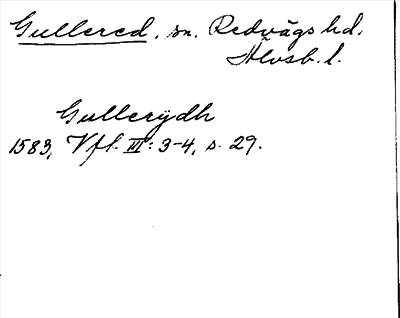 Gullered, sn. Redvägs hd,
Älvsb. l.
Gullerydh
1583, Vfl. III: 3-4, s. 29.